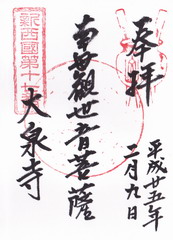 奉拝
平成廿五年
二月九日
南無観世音菩薩
新西國第十七番
大泉寺